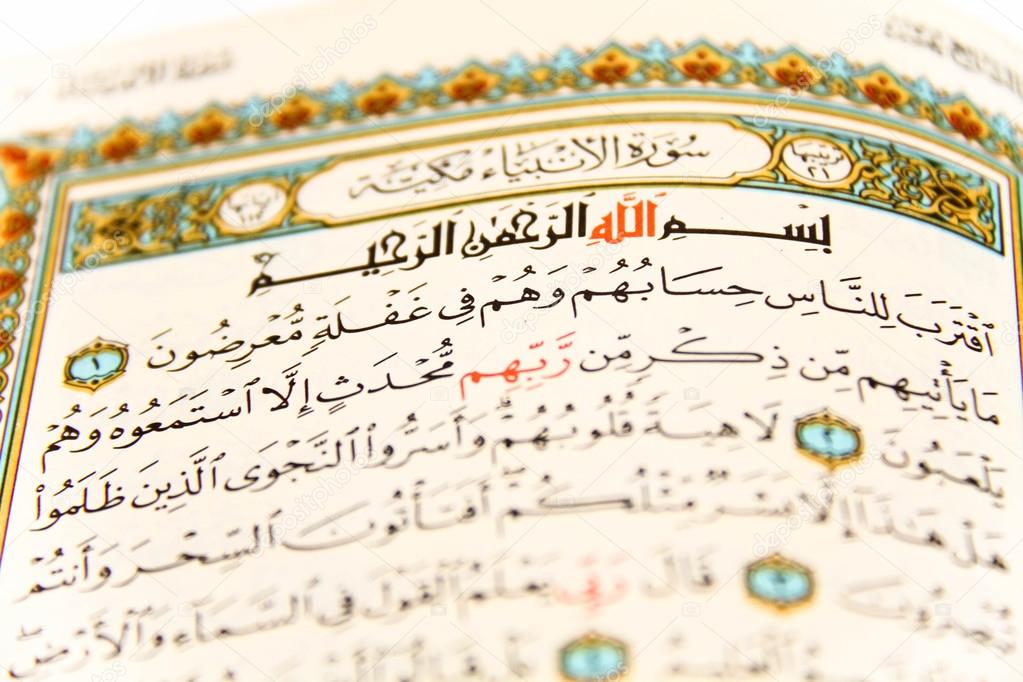 سُورَةُ الْأَنْبِيَاءِ مَكِّيَّة
ترتيبها ٢١
بِسْمِ اللَّهِ الرَّحْمَٰنِ الرَّحِيمِ
ٱقْتَرَبَ لِلنَّاسِ حِسَابُهُمْ وَهُمْ فِى غَفْلَةٍ مُّعْرِضُونَ ١
مَا يَأْتِيهِم مِّن ذِكْرٍ مِّن رَّبِّهِم مُّحْدَثٍ إِلَّا ٱسْتَمَعُوهُ وَهُمْ
يَلْعَبُونَ ٢ لَاهِيَةً قُلُوبُهُمْ وَأَسَرُّوا۟ ٱلنَّجْوَى ٱلَّذِينَ ظَلَمُوا۟
هَلْ هَٰذَآ إِلَّا بَشَرٌ مِّثْلُكُمْ أَفَتَأْتُونَ ٱلسِّحْرَ وَأَنتُمْ
تُبْصِرُونَ ٣ قَالَ رَبِّى يَعْلَمُ ٱلْقَوْلَ فِى ٱلسَّمَآءِ وَٱلْأَرْضِ
depositphotos